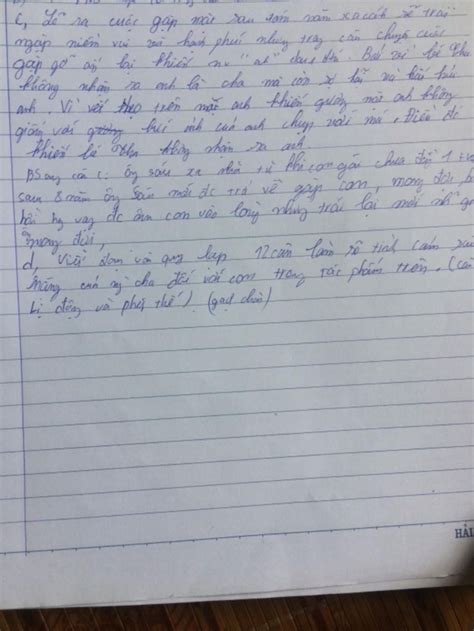 c, Lẽ ra cuộc gặp mặt sau tám năm xa cách sẽ tràn
ngập niềm vui và hạnh phúc nhưng trong câu chuyện cuộc
gặp gỡ ấy lại khiến nv " " đau khổ. Bởi vì bé Thu
không nhận ra anh là cha mà còn sợ hãi và
anh. Vì vết trên mặt anh khiến gương mặt anh không
giống với bức ảnh của anh chụp với má. Điều đó
khiến bé Thu không nhận ra anh.
BS ý câu c: ông Sáu xa nhà từ khi con gái chưa đầy 1 tuổi
sau 8 năm ông Sáu mới đc trở về gặp con, mong đợi,
hi vọng đc ôm con vào lòng nhưng trái lại
mong đợi,
d, Viết đoạn văn quy nạp 12 câu làm rõ tình cảm sâu
nặng của ng cha đối với con trong tác phẩm trên. (câu
bị động và phép thế) (gạch chân)
HẢI